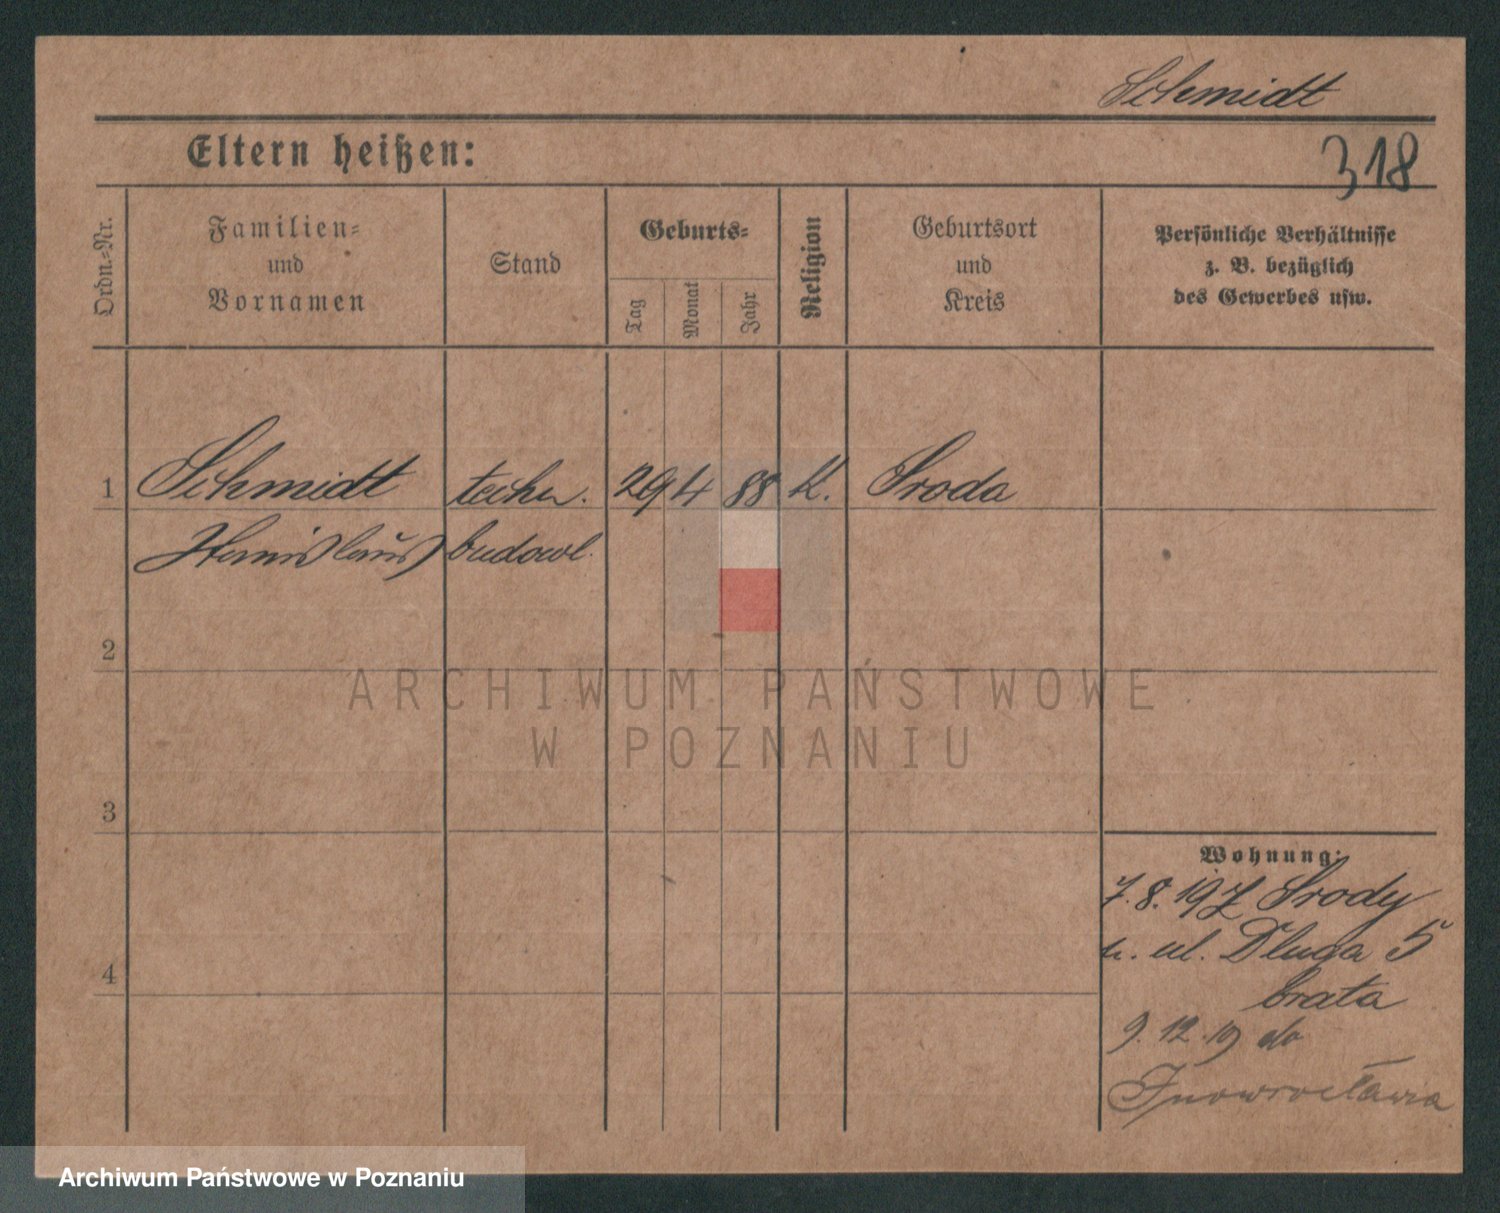 Schmidt
Eltern heißen:
318
Ordn.-Nr.
Familien-
und
Vornamen
Stand
Geburts-
Tag
Monat
Jahr
Religion
Geburtsort
und
Kreis
Persönliche Verhältnisse
z. B. bezüglich
des Gewerbes usw.
1 Schmidt techn. 29 4 88 K. Sroda
Stanislaus budowl.
2
3
4
Wohnung:
7.8.19 Z Srody
ul. Dluga 5
brata
9.12.19 do
Inowrocławia
ARCHIWUM PAŃSTWOWE
W POZNANIU
Archiwum Państwowe w Poznaniu